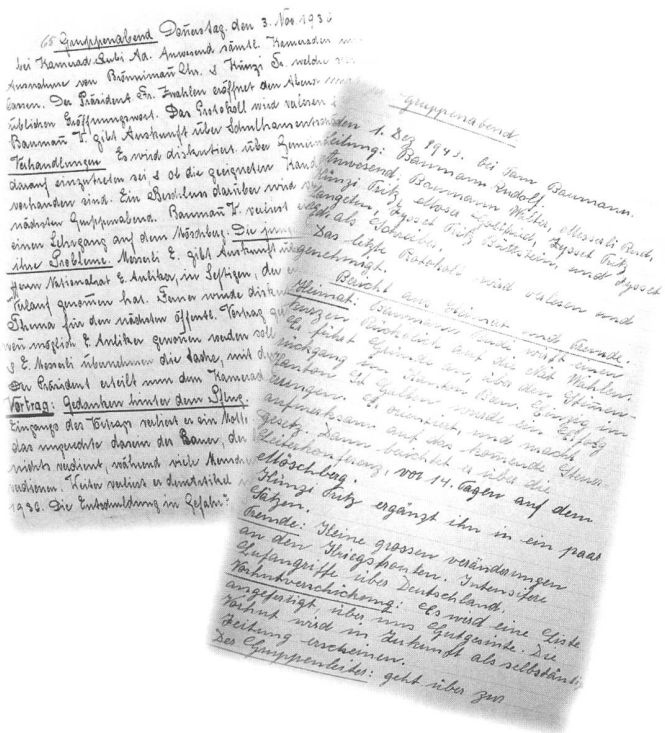 65 Gruppenabend Donerstag. den 3. Nov. 1936
bei Kamerad Aubi Ad. Anwesend sämtl. Kameraden
Ausnahme von Brönimañ Chr. & Künzi Fr. welche
lassen. Der Präsident Fr. Zwahlen eröffnet den Abend
üblichen Eröffnungswort. Das Protokoll wird verlesen
Baumañ W. gibt Auskunft über Schulhaus
Verhandlungen. Es wird diskutiert über
darauf einzutreten sei & ob die geeigneten
vorhanden sind. Ein Beschluss darüber wird
nächsten Gruppenabend. Baumañ W. verliest
einen Lehrgang auf dem Möschberg. Die
ihre Probleme. Messerli E. gibt Auskunft
Herrn Nationalrat E. Anliker, in Seftigen, der
Verlauf genomen hat. Ferner wurde
Thema für den nächsten öffentl. Vortrag
weñ möglich E. Anliker gewoñen werden soll
& E. Messerli übernehmen die Sache, mit
Der Präsident erteilt nun dem Kamerad
Vortrag: Gedanken hinter dem Pflug.
Eingangs des Vortrags verliest er ein
das ungerechte dasein der Bauer, der
nichts verdient, während viele
verdienen. Weiter verliest er
1936. Die Entschuldung in Gefahr?
Gruppenabend
den 1. Dez 1943. bei Fam Baumann.
Leitung: Baumann Rudolf.
Anwesend: Baumann Walter, Messerli Rud,
Künzi Fritz, Gottfried, Zysset Fritz
Längeten, Zysset Fritz, und Zysset
als Schreiber.
Das letzte Protokoll wird verlesen und
genehmigt.
Bericht aus Heimat und Fremde.
Heimat: Baumann Rudi wirft einen
kurzen Rückblick auf die Nat Wahlen.
Er führt Gründe an, über den Stimen-
rückgang im Kanton Bern. Einzig im
Kanton St Gallen wurde ein Erfolg
errungen. Er orientiert und macht
aufmerksam auf das kommende Steuer-
gesetz. Dann berichtet er über die
Leiterkonferenz, vor 14. Tagen auf dem
Möschberg.
Künzi Fritz ergänzt ihn in ein paar
Sätzen.
Fremde: Keine grossen veränderungen
an den Kriegsfronten. Intensifere
Lufangriffe über Deutschland.
Vorhutverschickung: Es werd eine Liste
angefertigt, über uns Gutgesinte. Die
Vorhut wird in Zukunft als selbständig
Zeitung erscheinen.
Der Gruppenleiter: geht über zur